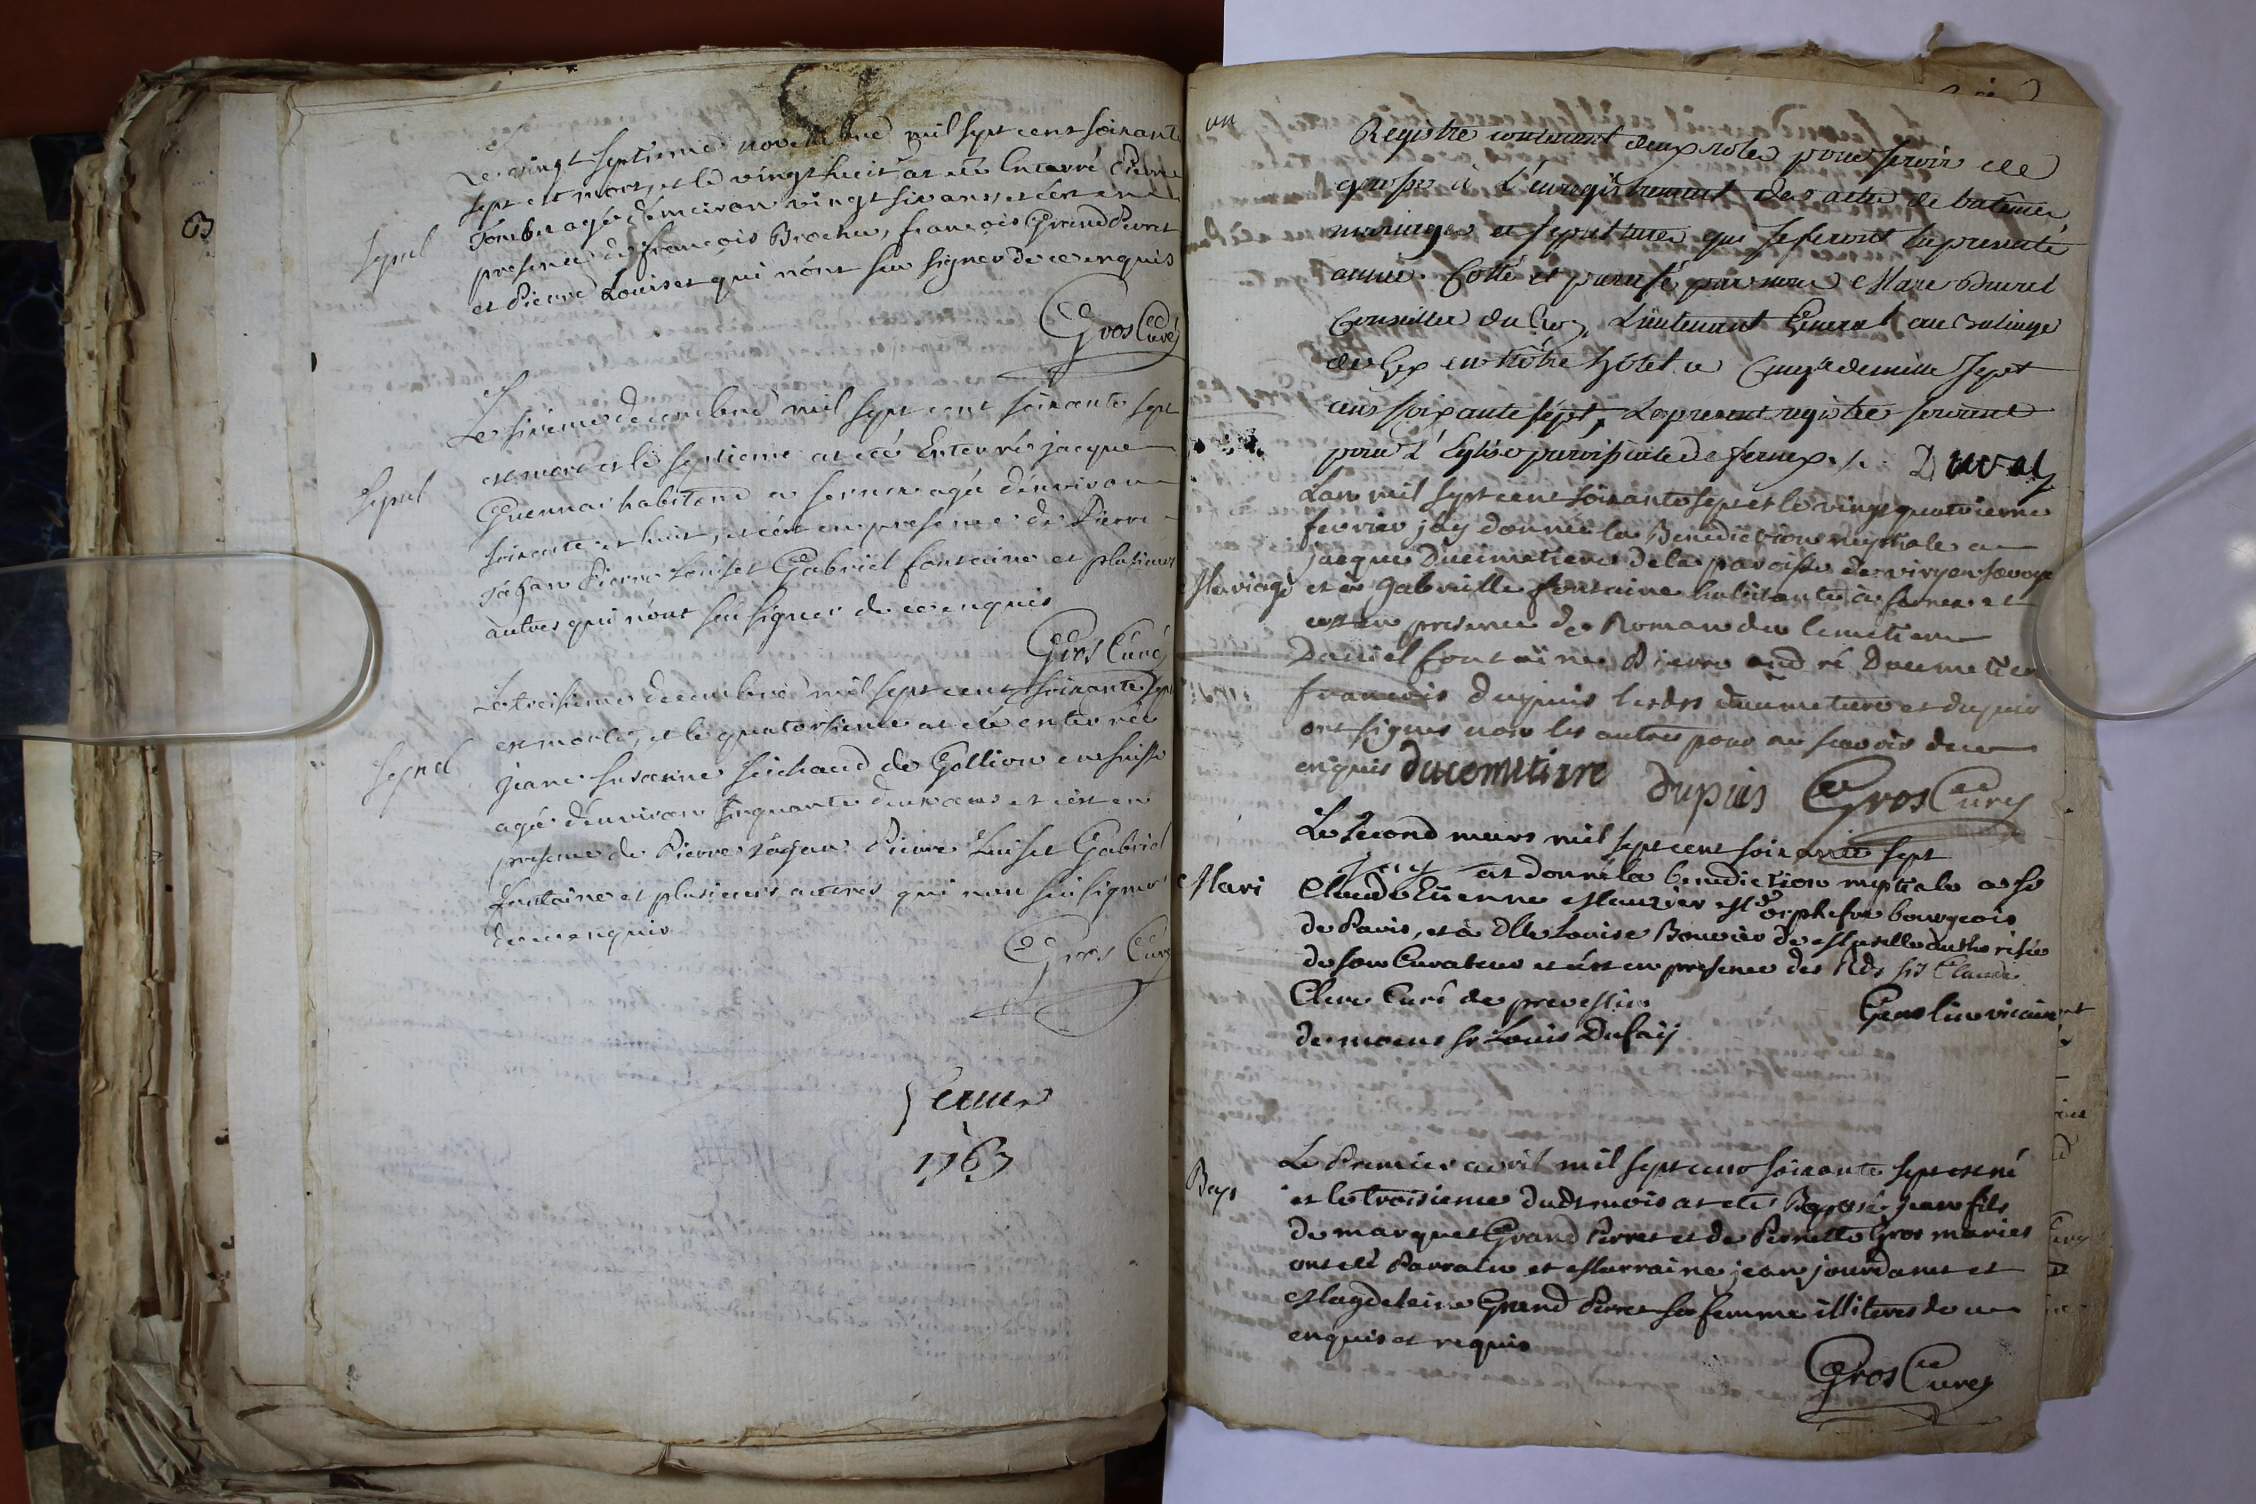 Le vingt septieme novembre mil sept cent soixante
sept est mort, et le vingt huit at eté Enterré Pierre
Tombe agé d'environ vingt six ans, et c'est en
presence de François Broche, françois Grand Perret
et Pierre Louiset qui n'ont seu signer de ce enquis
Sepul
Gros Curé
Le sixieme decembre mil sept cent soixante sept
est mort et le septieme at eté Enterré jacque
Guernai habitand a fernex agé d'environ
soixante et huit, et c'est en presence de Pierre
Pierre Louiset Gabriel fontaine et plusieurs
autres qui n'ont seu signer de ce enquis
Sepul
Gros Curé
Le treisieme decembre mil sept cent soixante sept
est morte, et le quatorsieme at eté enterrée
jeane susanne de Gollion en suisse
agée d'environ Cinquante deux ans et c'est en
presence de Pierre Pierre Luiset Gabriel
fontaine et plusieurs autres qui non seu signer
de ce enquis
Sepul
Gros Curé
fernex
1767
un
Registre contenant deux roles pour servir de
grosse à l'enregistrement des actes de batêmes
mariages et sepultures qui se feront la presente
année. Cotté et paraffé par nous Marc Duval
Conseiller du Roy, Lieutenant General au Bailiage
de Gex en nôtre hôtel ce mille sept
cens soixante sept, Le present registre servant
pour L'Eglise paroissiale de fernex ./. Duval
L'an mil sept cent soixante sept et le vingt quatrieme
fevrier j'ay donné la Benediction nuptiale a
jacque Ducimetiere de la paroisse de viry en savoye
Mariage et a gabrielle fontaine habitante a fernex et
c'est en presence de Roman du Cimetiere
Daniel fontaine Pierre andré Ducimetiere
francois dupuis lesdts ducimetiere et dupuis
ont signés non les autres pour ne scavoir de ce
enquis ducemetiere dupuis Gros Curé
Le second mars mil sept cent soixante sept
j'ay at donné la benediction nuptiale a sr
Mari Claude Etienne Maurier Me orphefvre bourgeois
de Paris, et à Dlle Louise Bouvier de authorisée
de son Curateur et c'est en presence des Rds srs Claude
Clerc Curé de prevessin Genolin vicaire
de moens sr Louis Dufaij
Bap
Le Premier avril mil sept cent soixante sept est né
et le troisieme dudt mois at eté Baptisé jean fils
de marquet Grand Perret et de Pernette Gros mariés
ont eté Parrain et Marraine jean jourdanet et
Magdeleine Grand Perret sa femme illiteres de ce
enquis et requis
Gros Curé